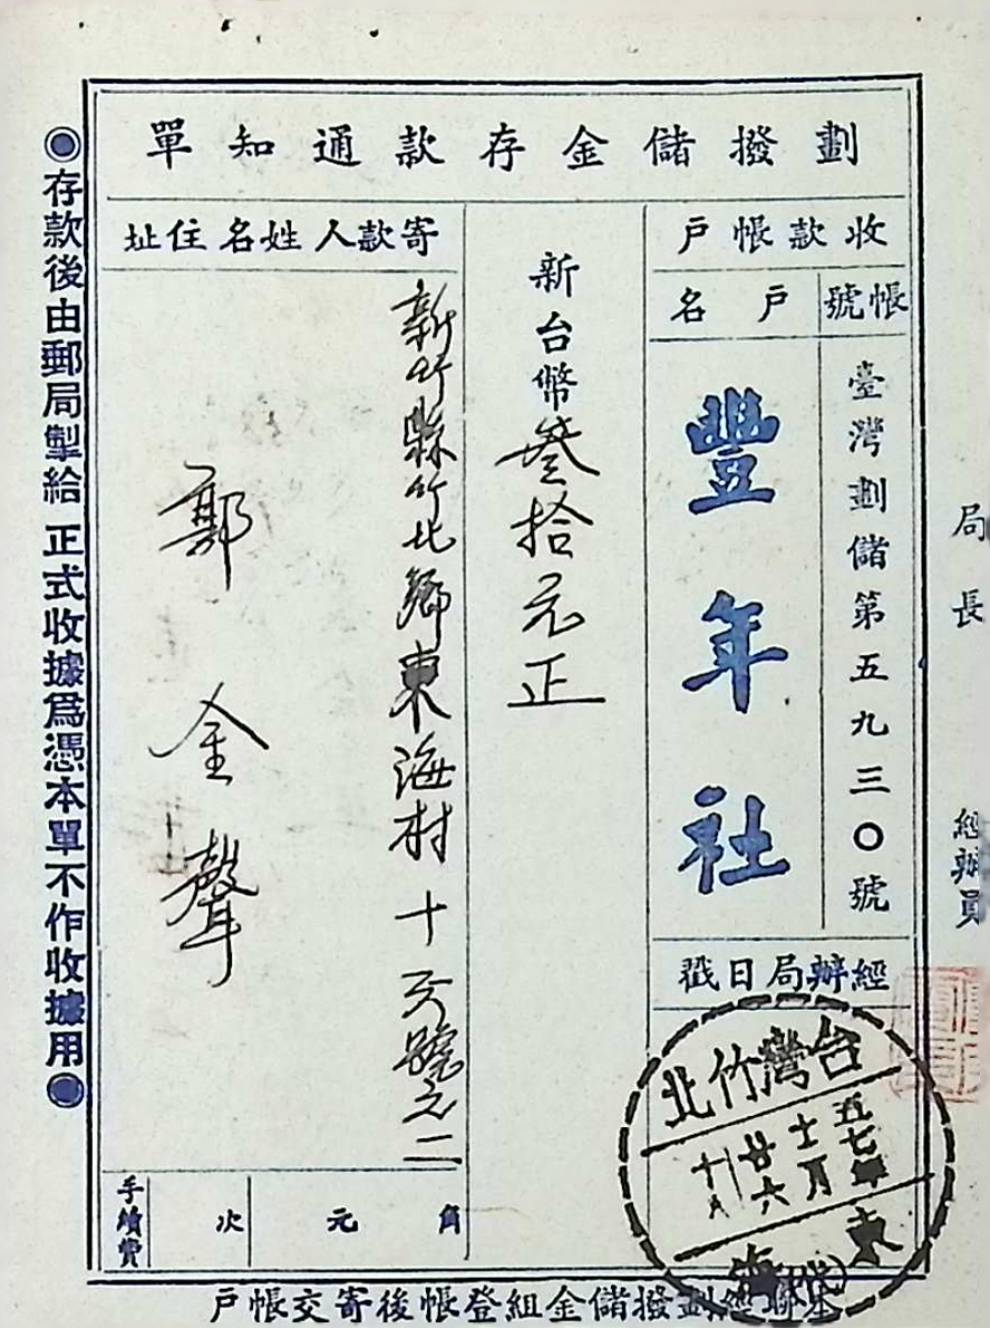 劃撥儲金存款通知單
收款帳戶
帳號
戶名
臺灣劃儲第五九三〇號
豐年社
經辦局日戳
台灣竹北
五七年
十二月
廿六
十
東海
新台幣叁拾元正
寄款人姓名住址
新竹縣竹北鄉東海村十
號之二
郭金聲
手續費
次
元
角
◉存款後由郵局掣給正式收據爲憑本單不作收據用◉
聯經劃撥儲金組登帳後寄交帳戶
局長
經辦員